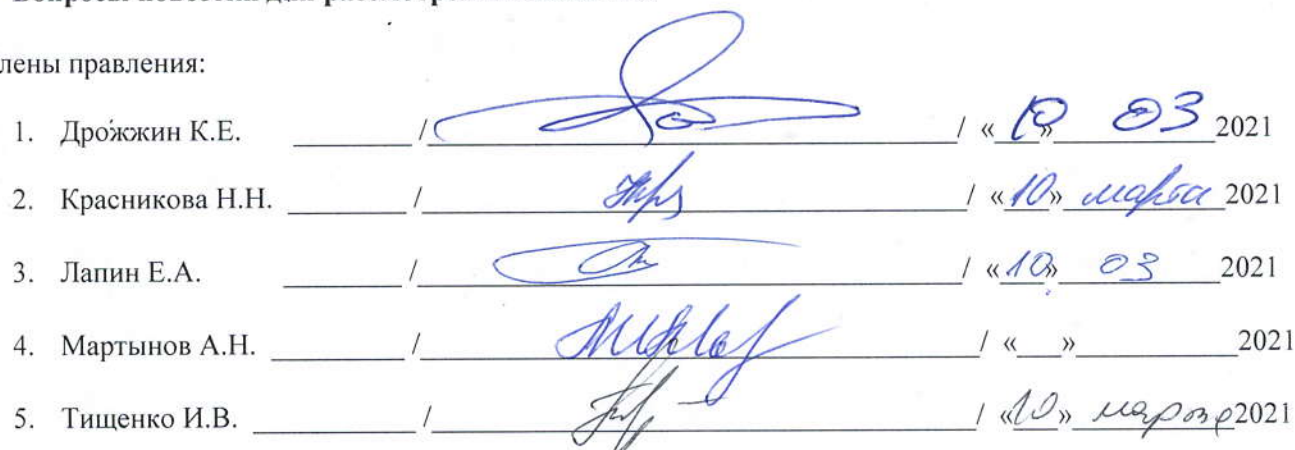 лены правления:
1. Дрожжин К.Е. ________ /________________/ «10» 03 2021
2. Красникова Н.Н. ________ /________________/ «10» марта 2021
3. Лапин Е.А. ________ /________________/ «10» 03 2021
4. Мартынов А.Н. ________ /________________/ «___» ________ 2021
5. Тищенко И.В. ________ /________________/ «10» марта 2021